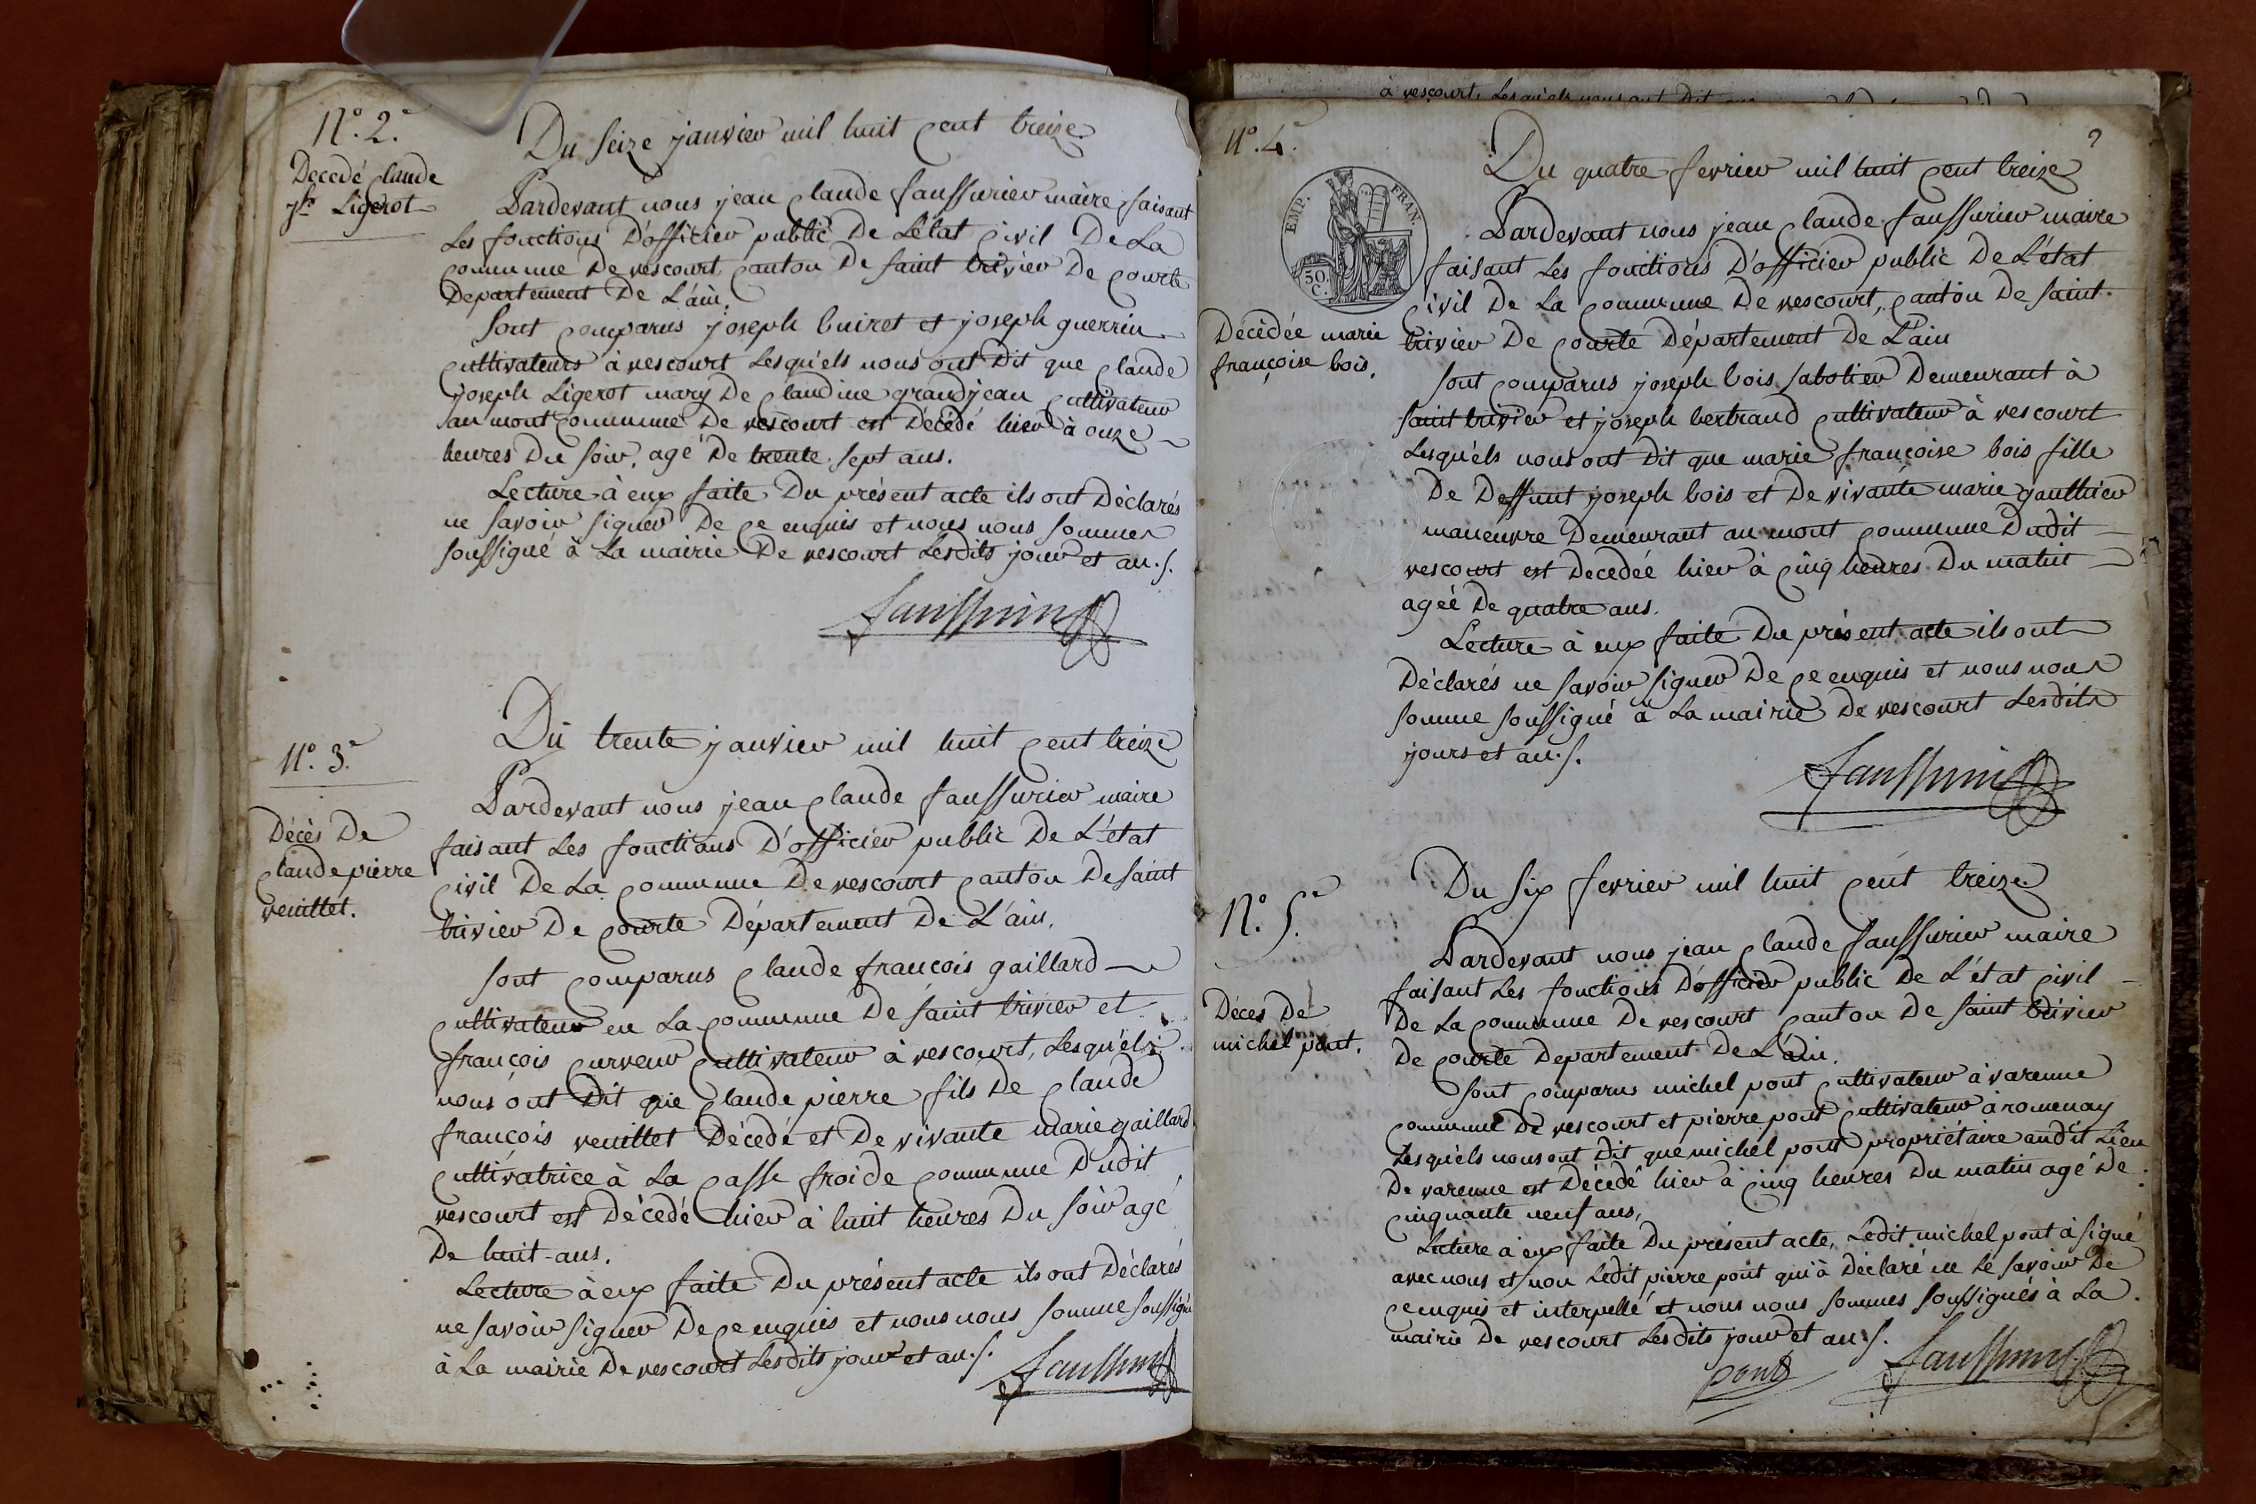 N.° 2.e
Decedé claude
jh Ligerot
Du seize janvier mil huit cent treize
Pardevant nous jean claude faussurier maire faisant
les fonctions D'officier public De L'état civil De La
commune De vescourt canton De saint trivier De courte
Departement De L'ain.
sont comparus joseph buiret et joseph guerrin
cultivateurs à vescourt Lesquéls nous ont Dit que claude
joseph Ligerot mary De claudine grandjean cultivateur
au mont commune De vescourt est Décédé hier à onze
heures Du soir, agé De trente sept ans.
Lecture à eux faite Du présent acte ils ont Déclarés
ne savoir signer De ce enquis et nous nous sommes
soussigné à La mairie De vescourt Lesdits jour et an.
N.° 3.e
Décès De
claude pierre
veuillet.
Du trente janvier mil huit cent treize
Pardevant nous jean claude faussurier maire
faisant Les fonctions D'officier public De L'état
civil De La commune De vescourt canton De saint
trivier De courte Département De L'ain.
sont comparus claude françois gaillard
cultivateur en La commune De saint trivier et
françois curveur cultivateur à vescourt, Lesquéls
nous ont Dit que claude pierre fils De claude
françois veuillet Décedé et De vivante marie gaillard
cultivatrice à La casse froide commune Dudit
vescourt est Décedé hier à huit heures Du soir agé
De huit ans.
Lecture à eux faite Du présent acte ils ont Déclarés
ne savoir signer De ce enquis et nous nous somme soussigné
à La mairie De vescourt Lesdits jour et an.
à vescourt, Lesquels nous ont Dit que
N.° 4.e
2
EMP. FRAN.
50 C.
Décédée marie
françoise bois.
Du quatre fevrier mil huit cent treize
Pardevant nous jean claude faussurier maire
faisant Les fonctions D'officier public De L'état
civil De La commune De vescourt, canton De saint
trivier De courte Département De L'ain
sont comparus joseph bois sabotier Demeurant à
saint trivier et joseph bertrand cultivateur à vescourt
Lesquéls nous ont Dit que marie françoise bois fille
De Deffunt joseph bois et De vivante marie gauthier
maneuvre Demeurant au mont commune Dudit
vescourt est Decedéé hier à cinq heures Du matin
agéé De quatre ans.
Lecture à eux faite Du présent acte ils ont
Déclarés ne savoir signer De ce enquis et nous nous
somme soussigné à La mairie De vescourt Lesdits
jours et an.
N.° 5.e
Décès De
michel pont.
Du six fevrier mil huit cent treize
Pardevant nous jean claude faussurier maire
faisant Les fonctions D'officier public De L'état civil
De La commune De vescourt canton De saint trivier
De courte Departement De L'ain.
sont comparus michel pont cultivateur à varenne
commune De vescourt et pierre pont cultivateur à romenay
Lesquéls nous ont Dit que michel pont propriétaire audit Lieu
De varenne est Décédé hier à cinq heures Du matin agé De
cinquante neuf ans,
Lecture à eux faite Du présent acte, Ledit michel pont à signé
avec nous et non Ledit pierre pont qui à Déclaré ne Le savoir De
ce enquis et interpellé et nous nous sommes soussignés à La
mairie De vescourt Lesdits jour et an.
pont